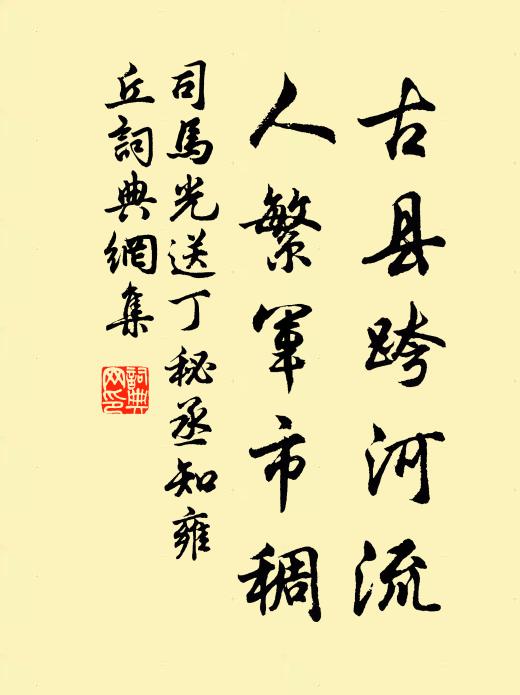 古县跨河流
人繁军市稠
司馬光送丁秘丞知雍
丘詞典網集
詞典
网印